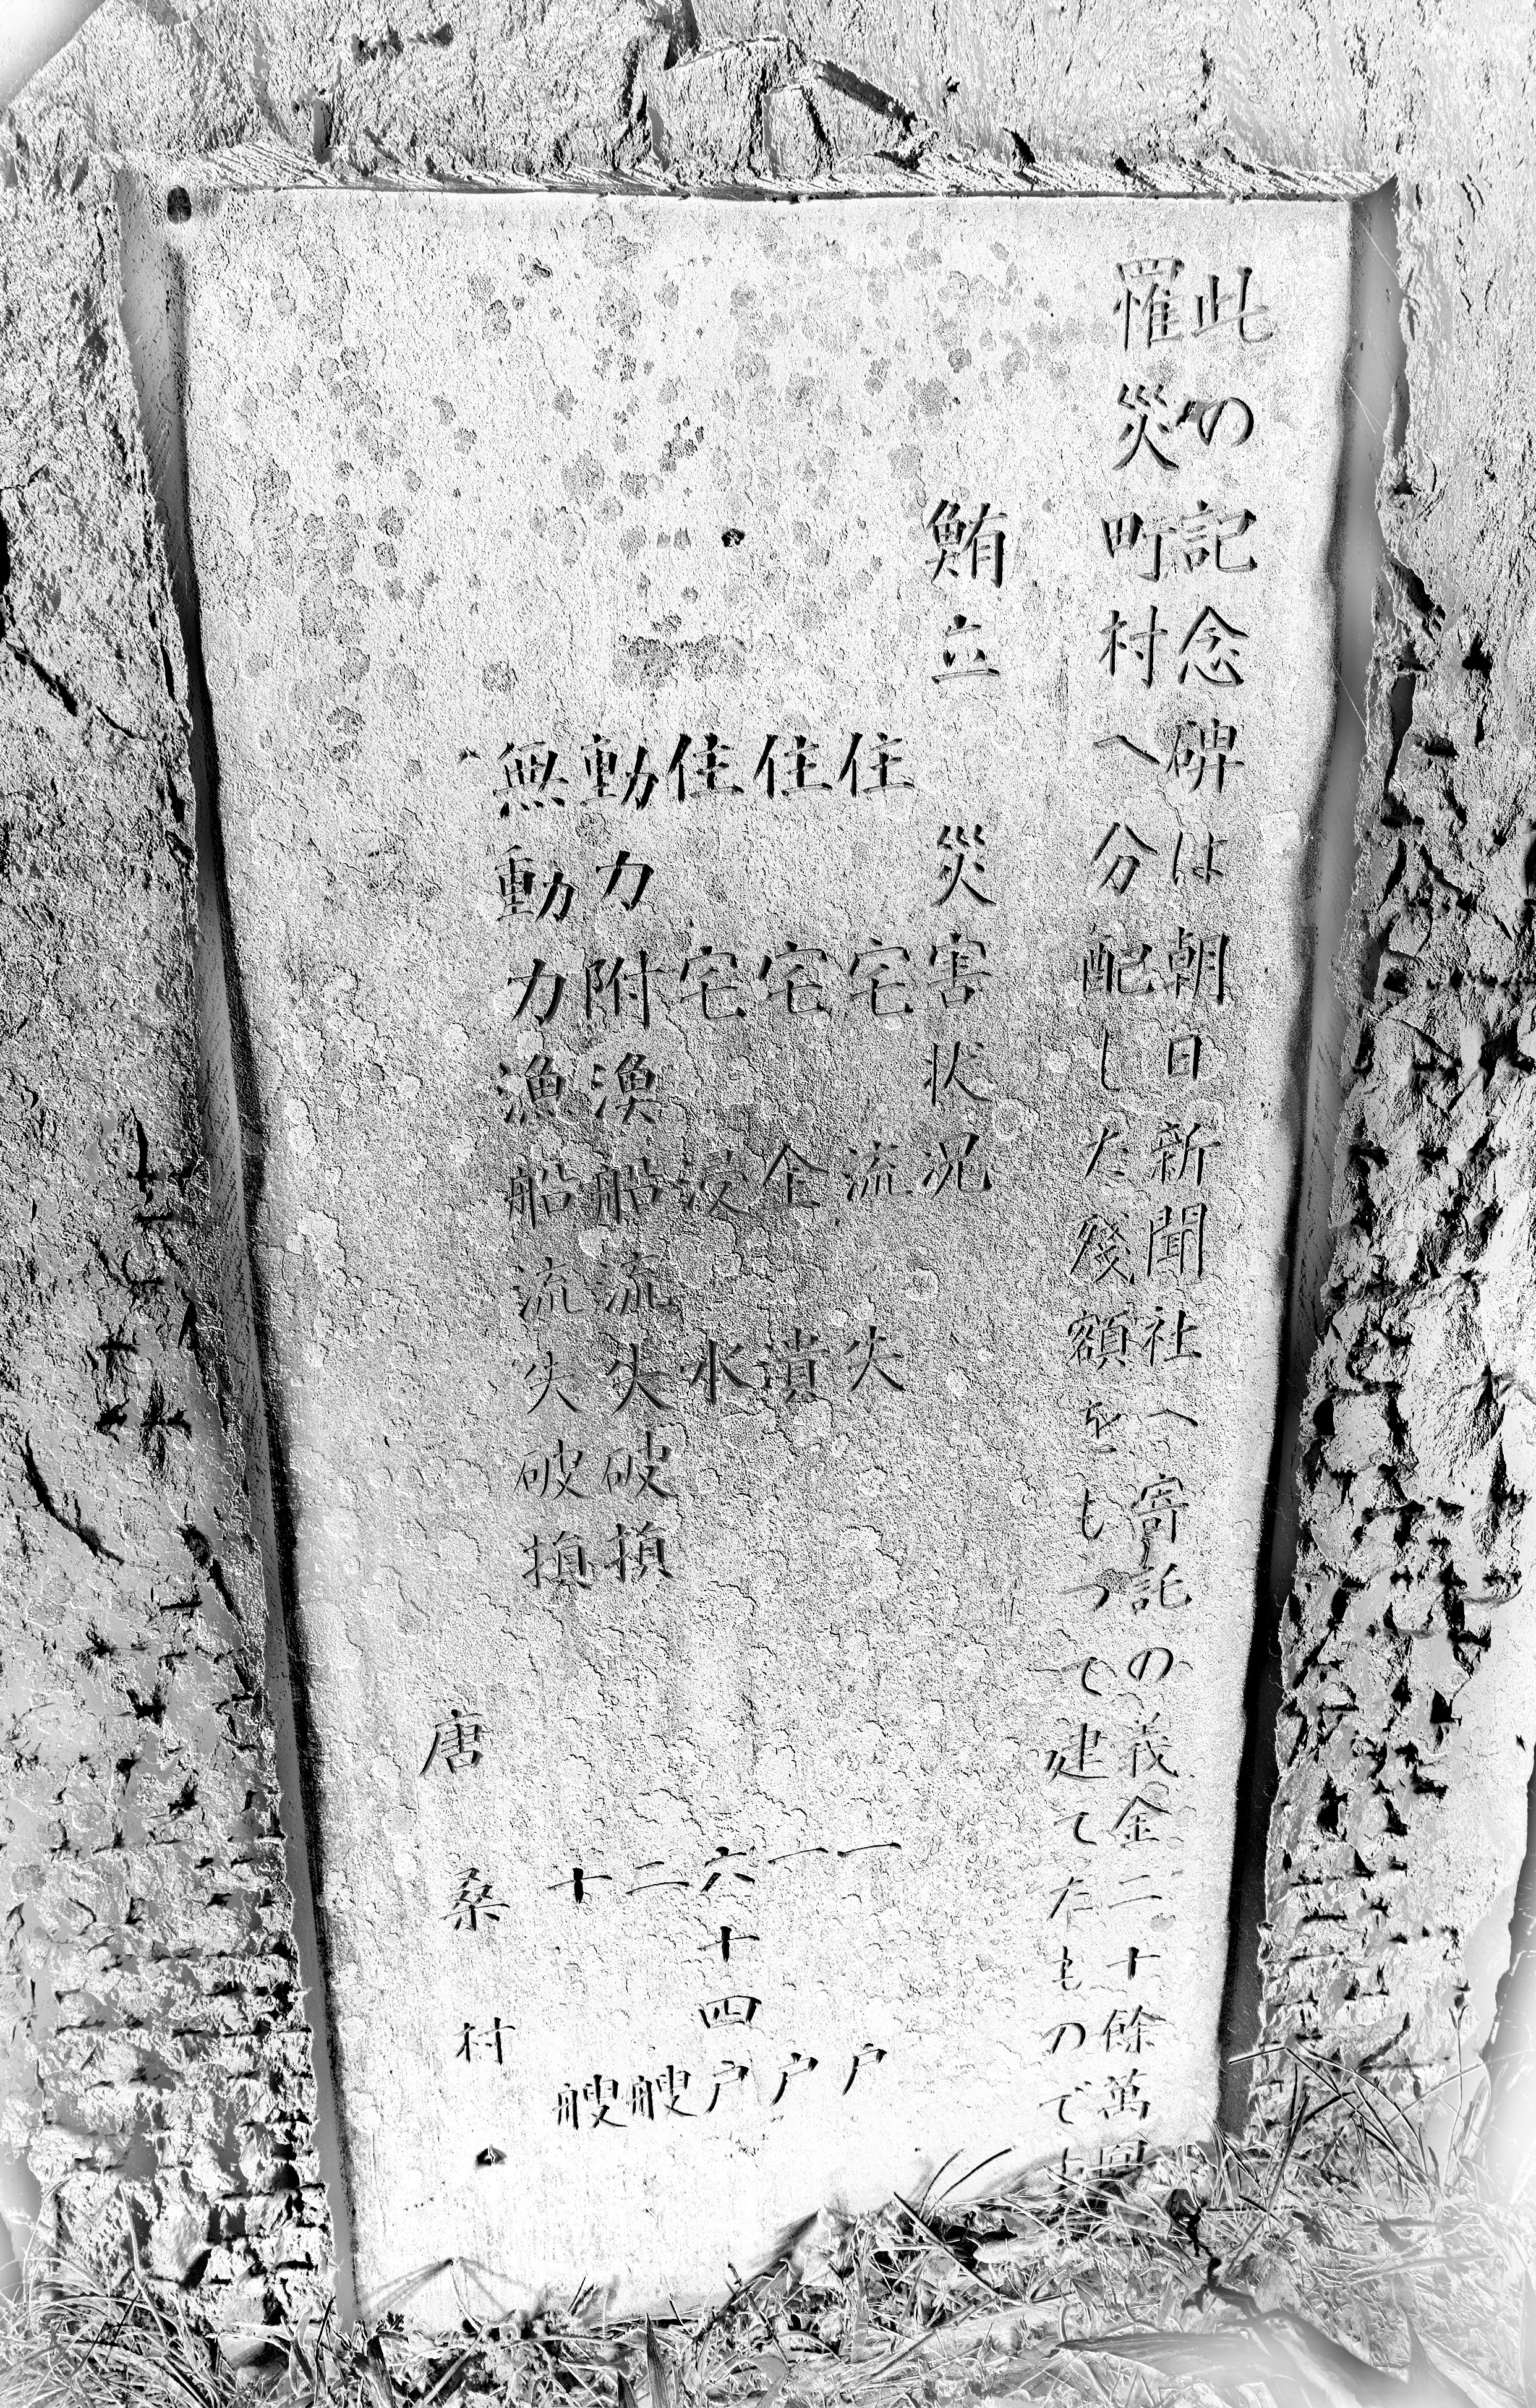 此の記念碑は朝日新聞社へ寄託の義金二十餘萬圓
罹災町村へ分配した殘額をもつて建てたもので
鮪立 災害状況
住宅流失 一戸
住宅全潰 一戸
住宅浸水 六十四戸
動力附漁船流失破損 二艘
無動力漁船流失破損 十艘
唐桑村